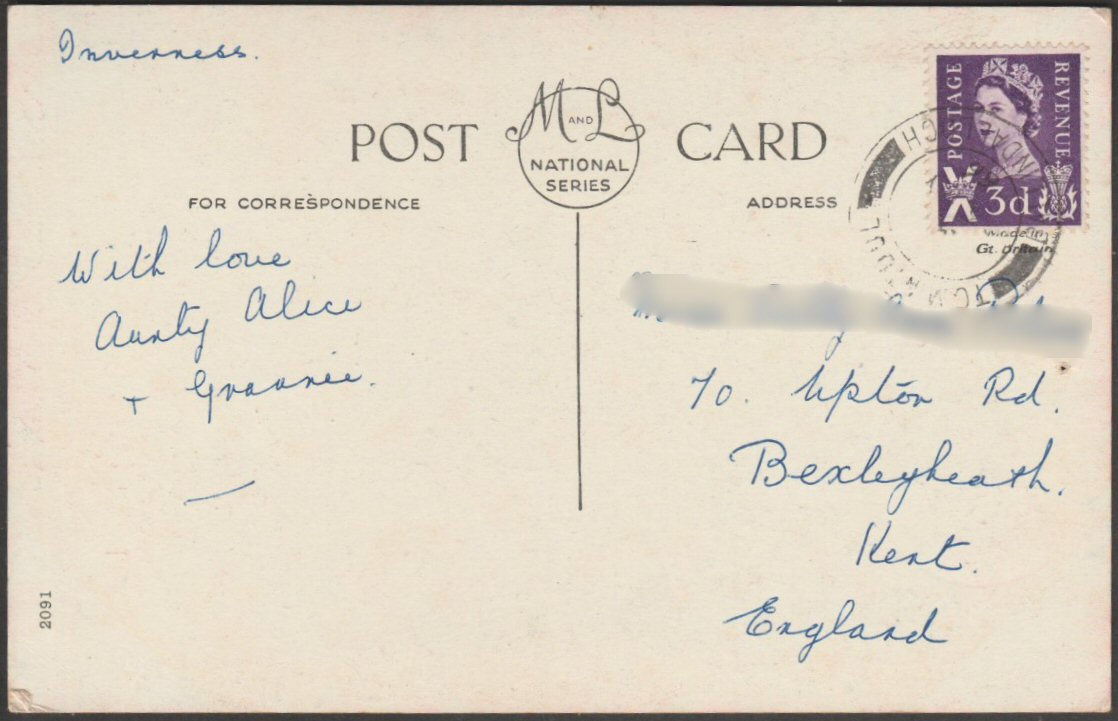 Inverness.
POST CARD
M AND L
NATIONAL
SERIES
FOR CORRESPONDENCE
ADDRESS
With love
Aunty Alice
+ Grannie.
POSTAGE
REVENUE
3d
Made in
Gt. Britain
70. Upton Rd.
Bexleyheath.
Kent.
England
2091